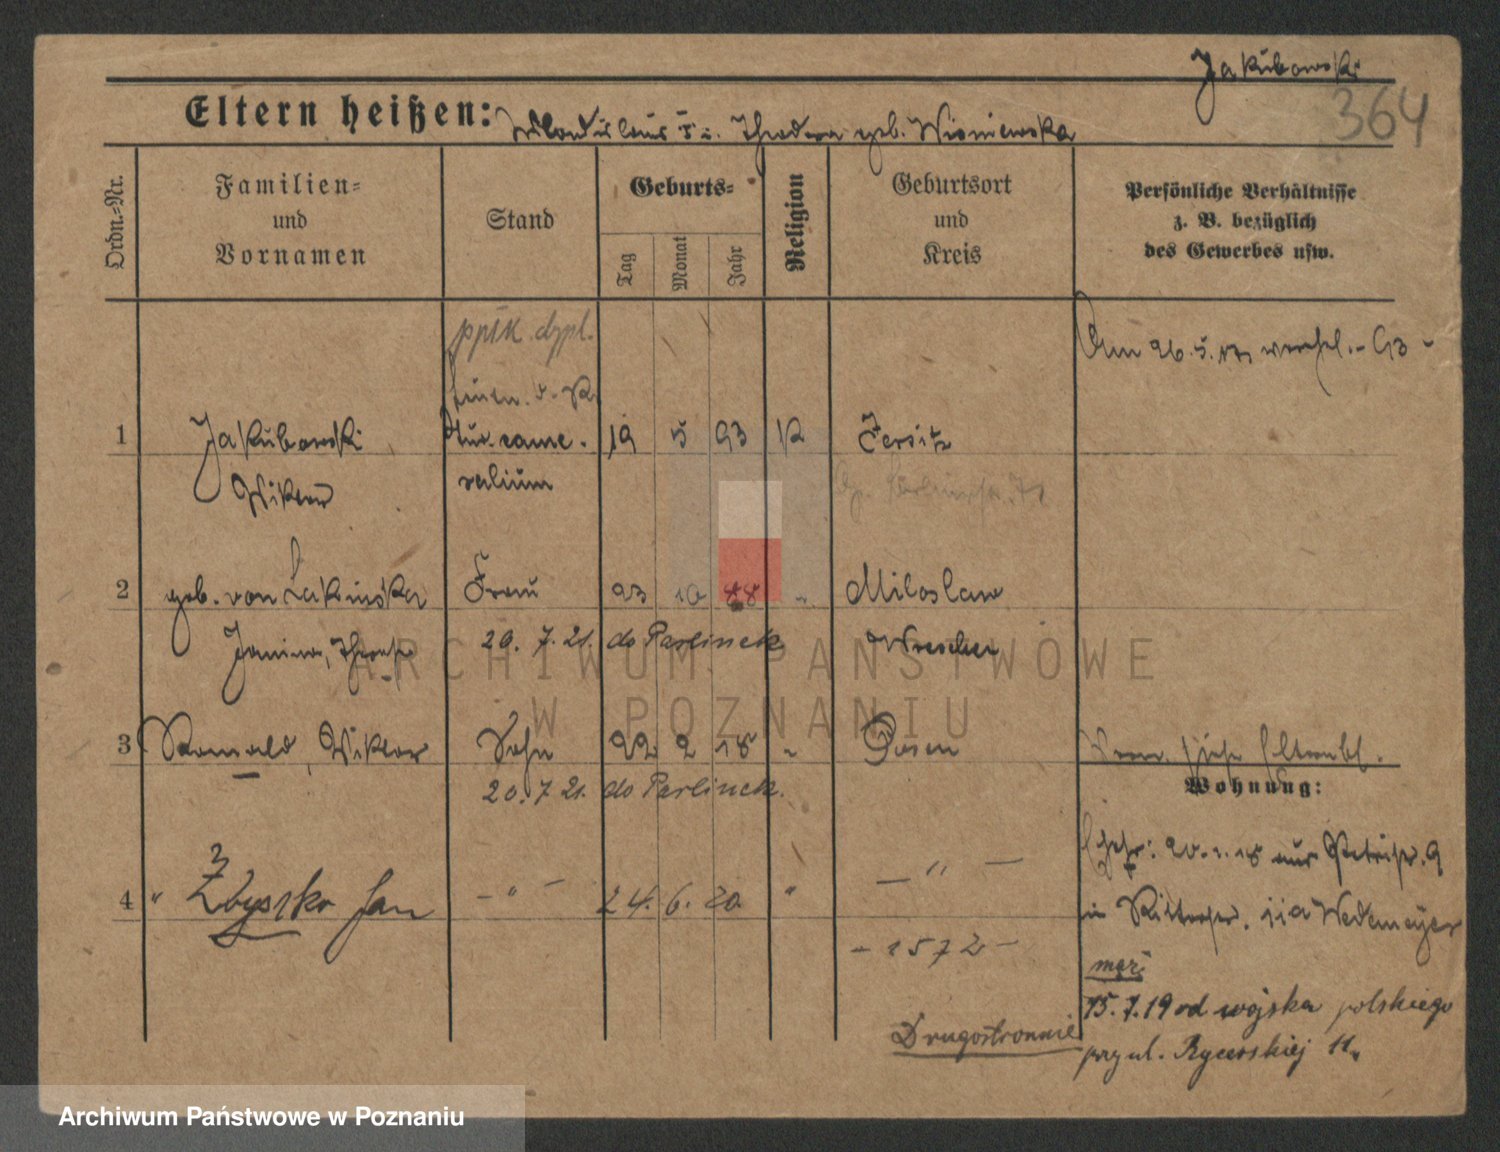 Jakubowski
364
Eltern heißen: Wladislaus † u. Theodora geb. Wisniewska
Ordn.-Nr.
Familien-
und
Vornamen
Stand
Geburts-
Tag
Monat
Jahr
Religion
Geburtsort
und
Kreis
Persönliche Verhältnisse
z. B. bezüglich
des Gewerbes usw.
pplk dypl.
Am 26. 5.
1 Jakubowski stud. came- 19 5 93 K Jersitz
Wiktor ralium
2 geb. von Lakinska Frau 23 10 88 " Miloslaw
Janina, Therese 20. 7. 21. do Parlinek Wreschen
3 Romuald, Wiktor Sohn 22 2 18 " Posen
20. 7. 21. do Parlinek.
Wohnung:
20. 1. 18 aus Petristr. 9
4 " Zbyszko Jan - " - 24. 6. 20 " - " -
in Ritterstr. 11a Wedemeyer
- 1572 -
mąż
15. 7. 19 od wojska polskiego
Drugostronnie
przy ul. Rycerskiej 11a
ARCHIWUM PAŃSTWOWE
W POZNANIU
Archiwum Państwowe w Poznaniu